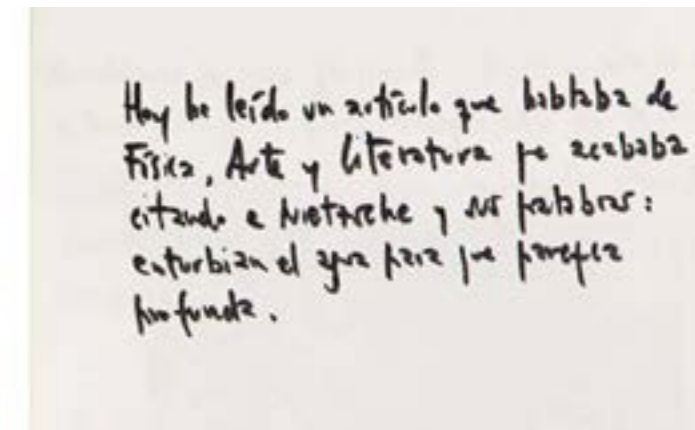 Hoy he leído un artículo que hablaba de
Física, Arte y Literatura que acababa
citando a Nietzsche y sus palabras:
enturbian el agua para que parezca
profunda.